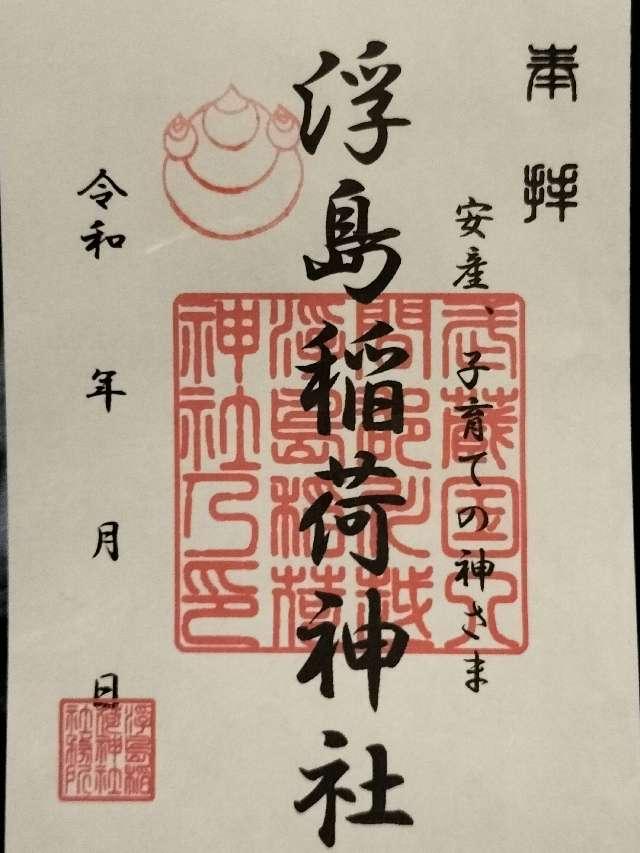 奉拝
安産、子育ての神さま
浮島稲荷神社
令和 年 月 日
武蔵国入
間郡川越
浮島稲荷
神社乃印
浮島稲
荷神社
社務所